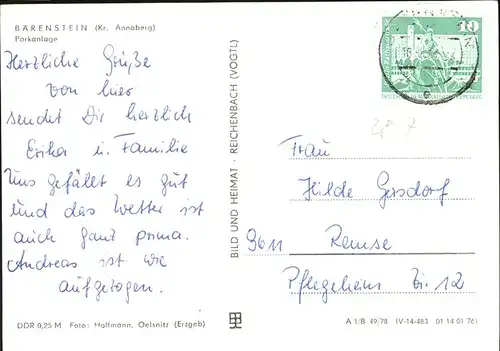 BÄRENSTEIN (Kr. Annaberg)
Parkanlage
Herzliche Grüße
von hier
sendet Dir herzlich
Erika u. Familie
Uns gefällt es gut
und das Wetter ist
auch ganz prima.
Andreas ist wie
aufgezogen.
DDR 0,25 M Foto: Hoffmann, Oelsnitz (Erzgeb)
BILD UND HEIMAT · REICHENBACH (VOGTL)
10
Frau
Hilde Gersdorf
9611 Remse
Pflegeheim Zi. 12
A 1/B 49/78 IV-14-483 01 14 01 761